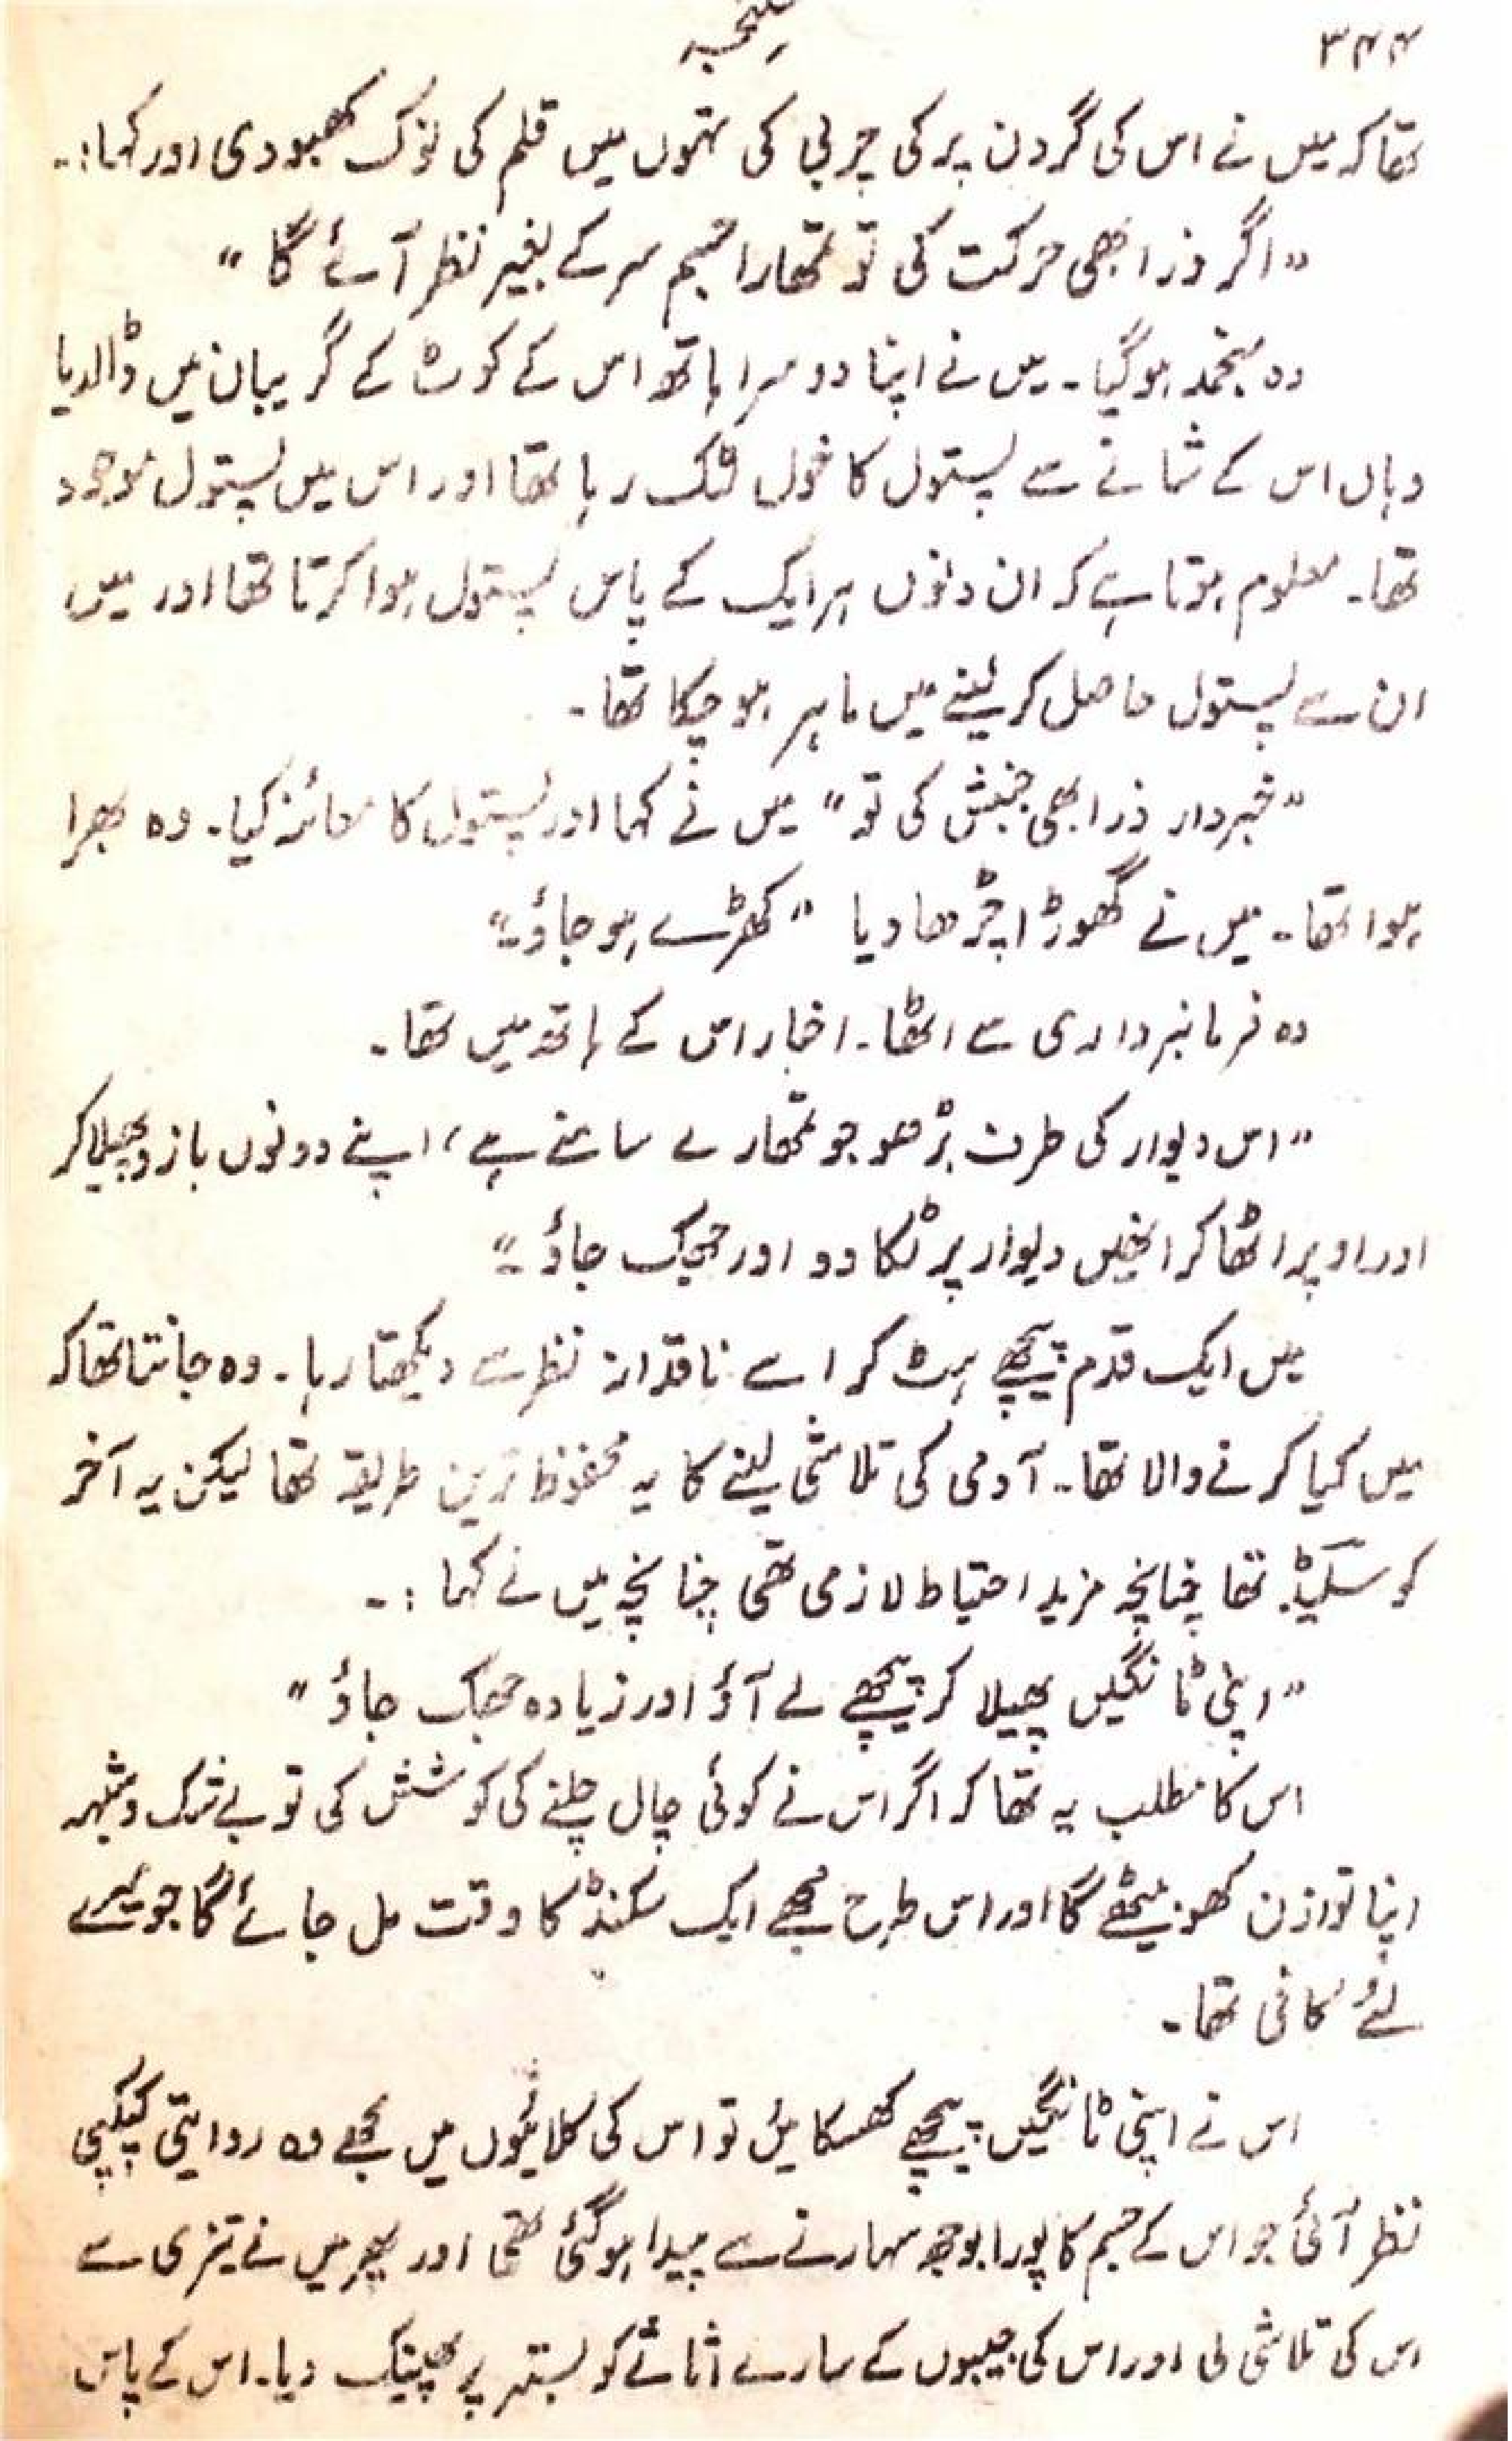 ۳۴۴
تھا کہ میں نے اس کی گردن پر کی چربی کی تہوں میں قلم کی نوک کھبودی اور کہا:۔
"اگر ذرا بھی حرکت کی تو تمھارا جسم سر کے بغیر نظر آئے گا"
وہ منجمد ہوگیا۔ میں نے اپنا دوسرا ہاتھ اس کے کوٹ کے گریبان میں ڈالدیا
وہاں اس کے شانے سے پستول کا خول لٹک رہا تھا اور اس میں پستول موجود
تھا۔ معلوم ہوتا ہے کہ ان دنوں ہر ایک کے پاس پستول ہوا کرتا تھا اور میں
ان سے پستول حاصل کرلینے میں ماہر ہو چکا تھا۔
"خبردار ذرا بھی جنبش کی تو" میں نے کہا اور پستول کا معائنہ کیا۔ وہ بھرا
ہوا تھا۔ میں نے گھوڑا چڑھا دیا "کھڑے ہو جاؤ۔"
وہ فرمانبرداری سے اٹھا۔ اخبار اس کے ہاتھ میں تھا۔
"اس دیوار کی طرف بڑھو جو تمھارے سامنے ہے، اپنے دونوں بازو پھیلا کر
اور اوپر اٹھا کر انھیں دیوار پر ٹکا دو اور جھک جاؤ۔"
میں ایک قدم پیچھے ہٹ کر اسے ناقدانہ نظر سے دیکھتا رہا۔ وہ جانتا تھا کہ
میں کیا کرنے والا تھا۔ آدمی کی تلاشی لینے کا یہ محفوظ ترین طریقہ تھا لیکن یہ آخر
کو سکیڈ تھا چنانچہ مزید احتیاط لازمی تھی چنانچہ میں نے کہا :۔
"اپنی ٹانگیں پھیلا کر پیچھے لے آؤ اور زیادہ جھک جاؤ"
اس کا مطلب یہ تھا کہ اگر اس نے کوئی چال چلنے کی کوشش کی تو بے شک و شبہہ
اپنا توازن کھو بیٹھے گا اور اس طرح مجھے ایک سکنڈ کا وقت مل جائے گا جو میرے
لئے کافی تھا۔
اس نے اپنی ٹانگیں پیچھے کھسکایئں تو اس کی کلائیوں میں مجھے وہ روایتی کپکپی
نظر آئی جو اس کے جسم کا پورا بوجھ سہارنے سے پیدا ہوگئی تھی اور پھر میں نے تیزی سے
اس کی تلاشی لی اور اس کی جیبوں کے سارے اثاثے کو بستر پر پھینک دیا۔ اس کے پاس